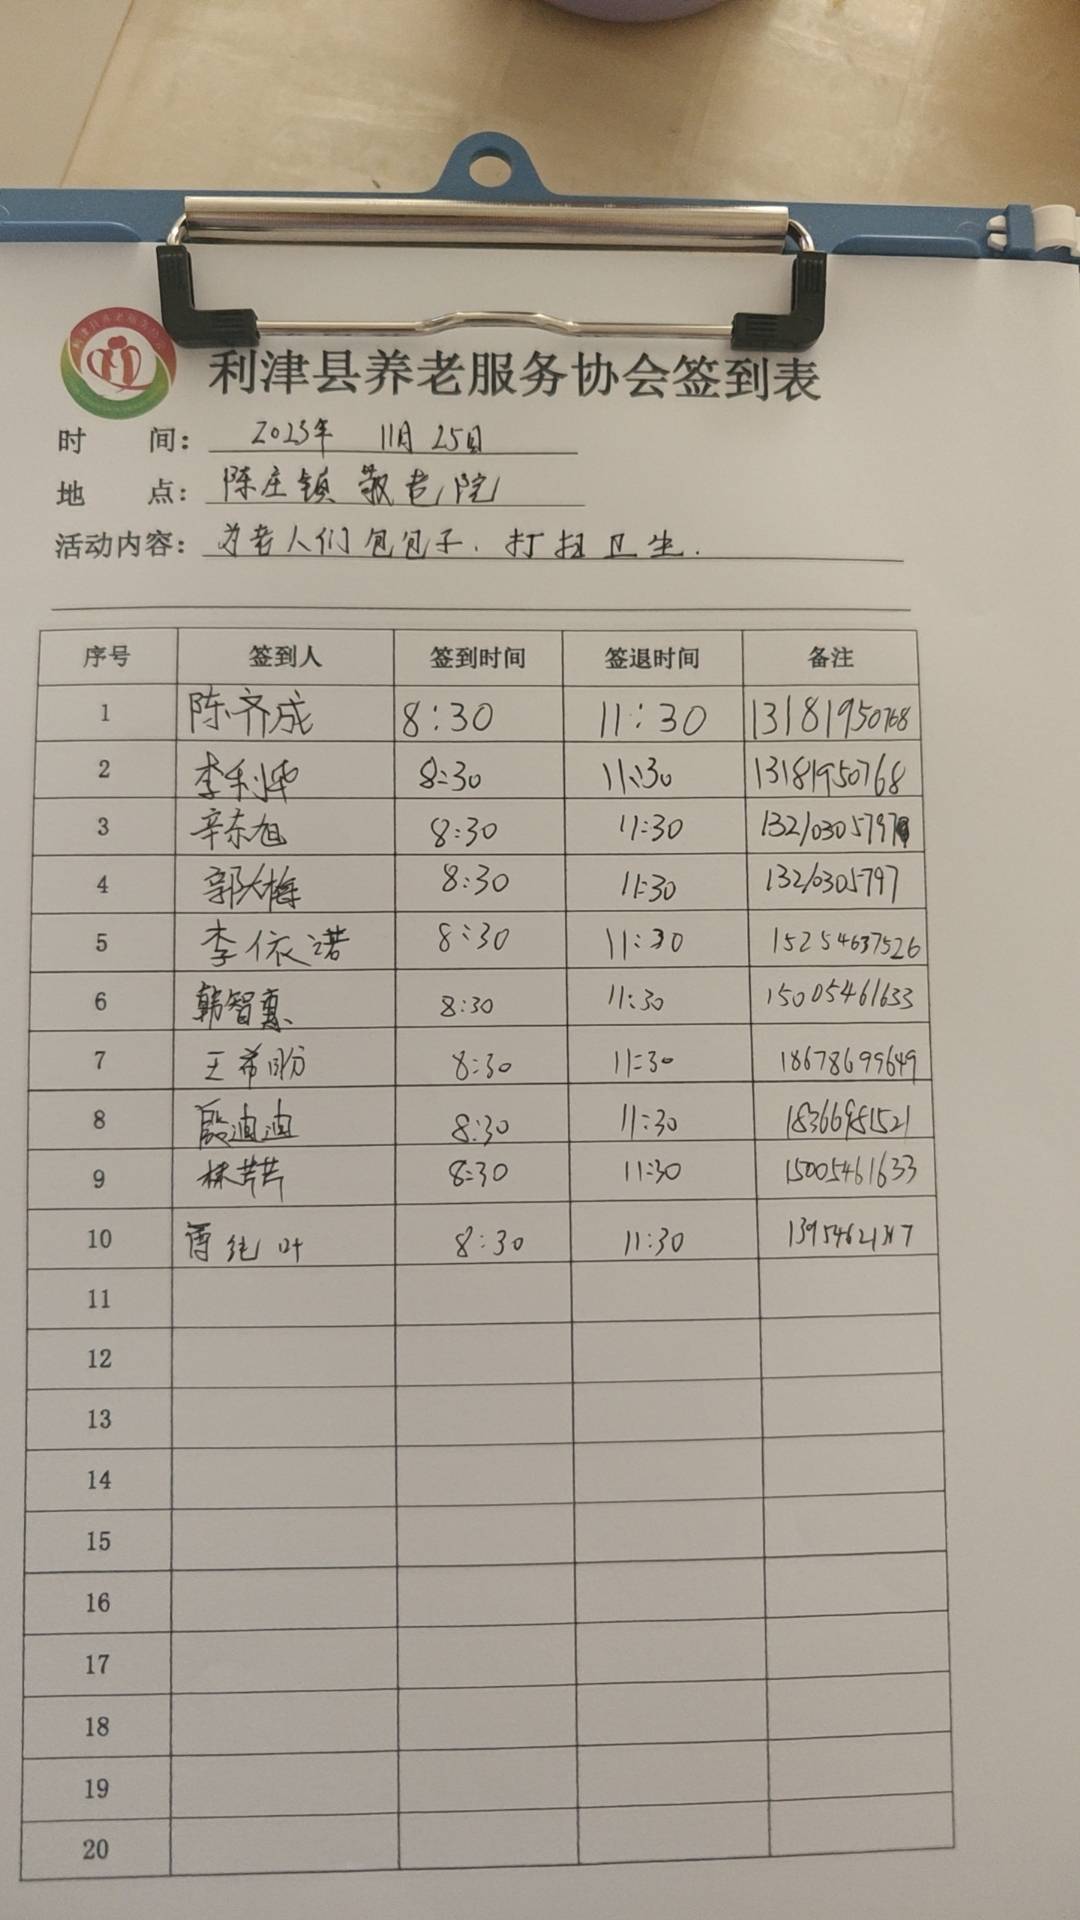 利津县养老服务协会签到表
时 间： 2023年 11月25日
地 点： 陈庄镇敬老院
活动内容： 为老人们包包子.打扫卫生.
序号 签到人 签到时间 签退时间 备注
1 陈齐成 8:30 11:30 13181950768
2 李利华 8:30 11:30 13181950768
3 辛东旭 8:30 11:30 13210305797
4 郭大梅 8:30 11:30 13210305797
5 李依诺 8:30 11:30 15254637526
6 韩智惠 8:30 11:30 15005461633
7 王希盼 8:30 11:30 18678699649
8 段迪迪 8:30 11:30 18366981521
9 林芹芹 8:30 11:30 15005461633
10 8:30 11:30
11
12
13
14
15
16
17
18
19
20